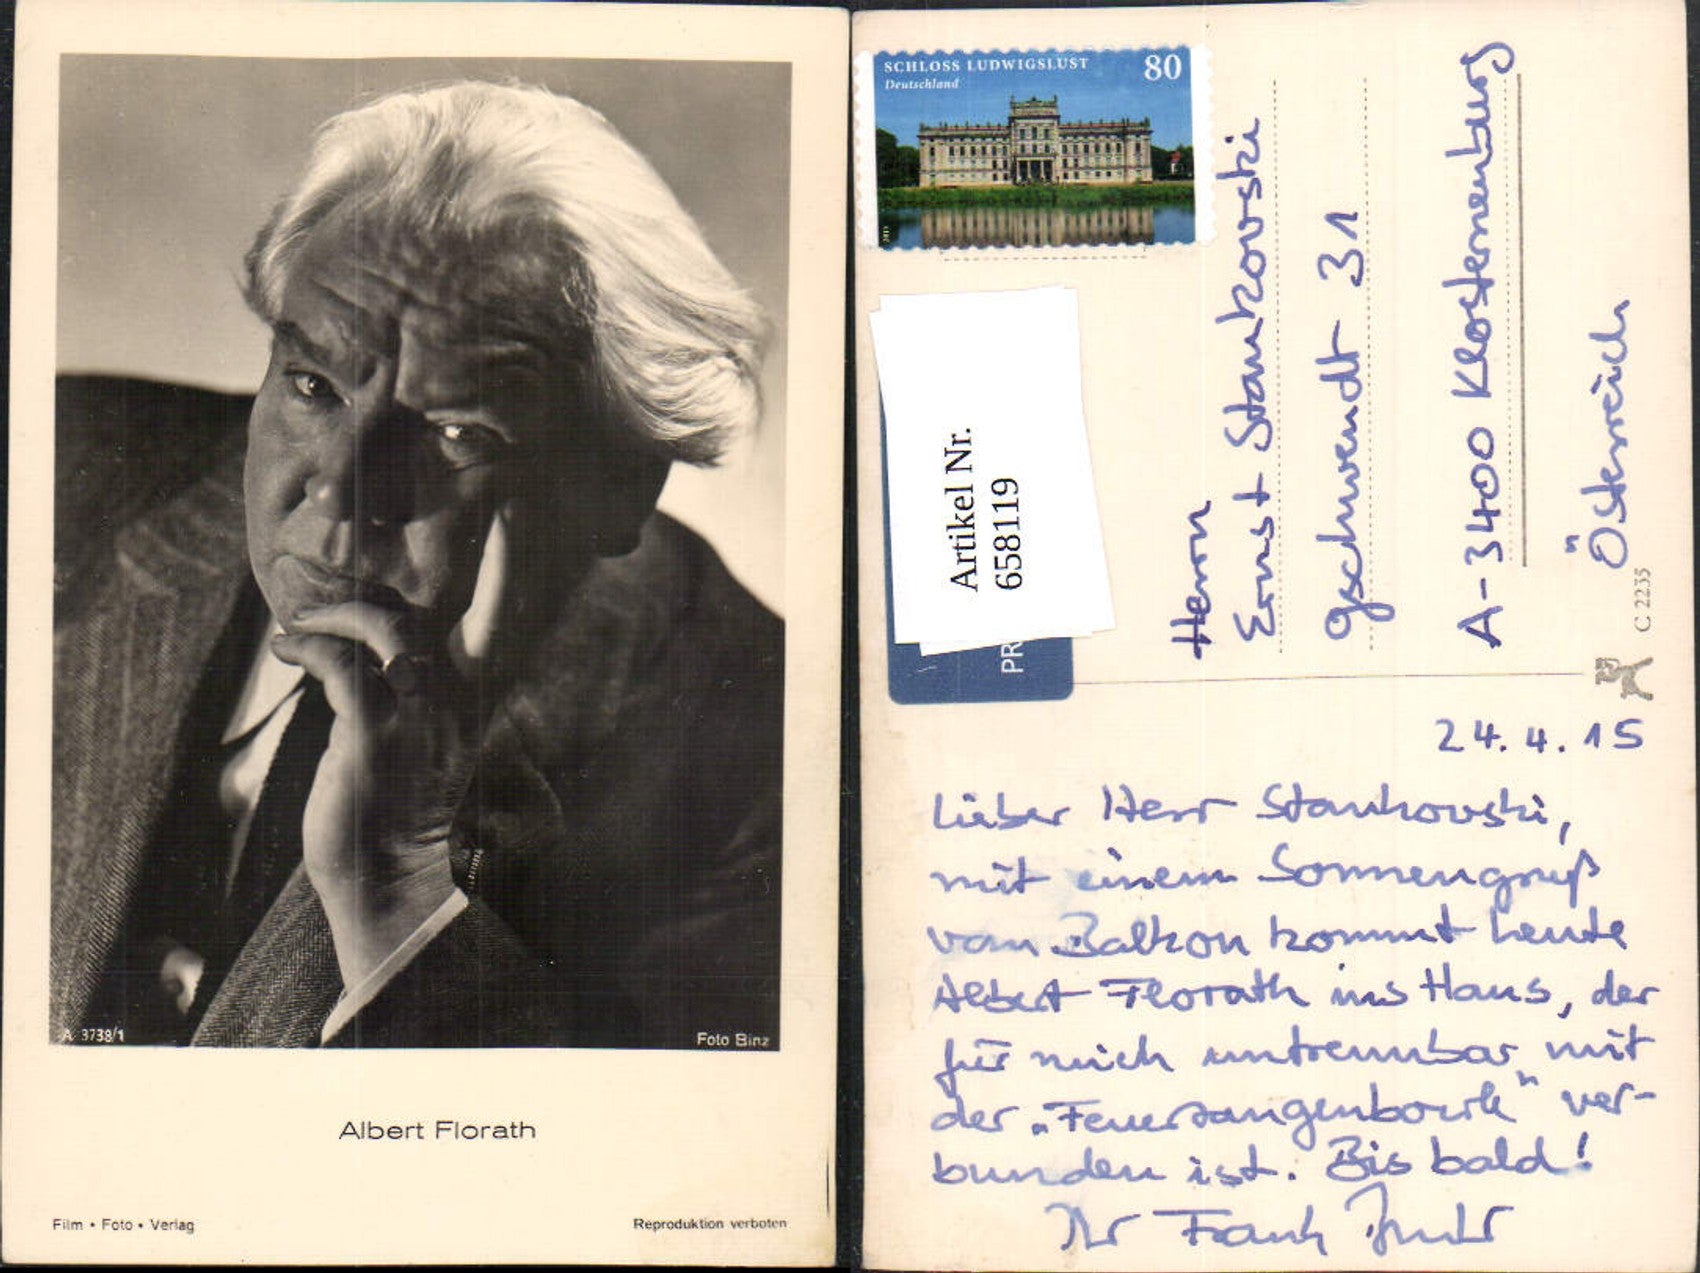 A 3738/1
Foto Binz
Albert Florath
Film • Foto • Verlag
Reproduktion verboten
SCHLOSS LUDWIGSLUST
Deutschland
80
2015
Artikel Nr.
658119
PR
Herrn
Ernst Stankovski
Gschwendt 31
A-3400 Klosterneuburg
Österreich
C 2235
24.4.15
Lieber Herr Stankovski,
mit einem Sonnengruß
vom Balkon kommt heute
Albert Florath ins Haus, der
für mich untrennbar mit
der „Feuerzangenbowle" ver-
bunden ist. Bis bald!
Ihr Frank